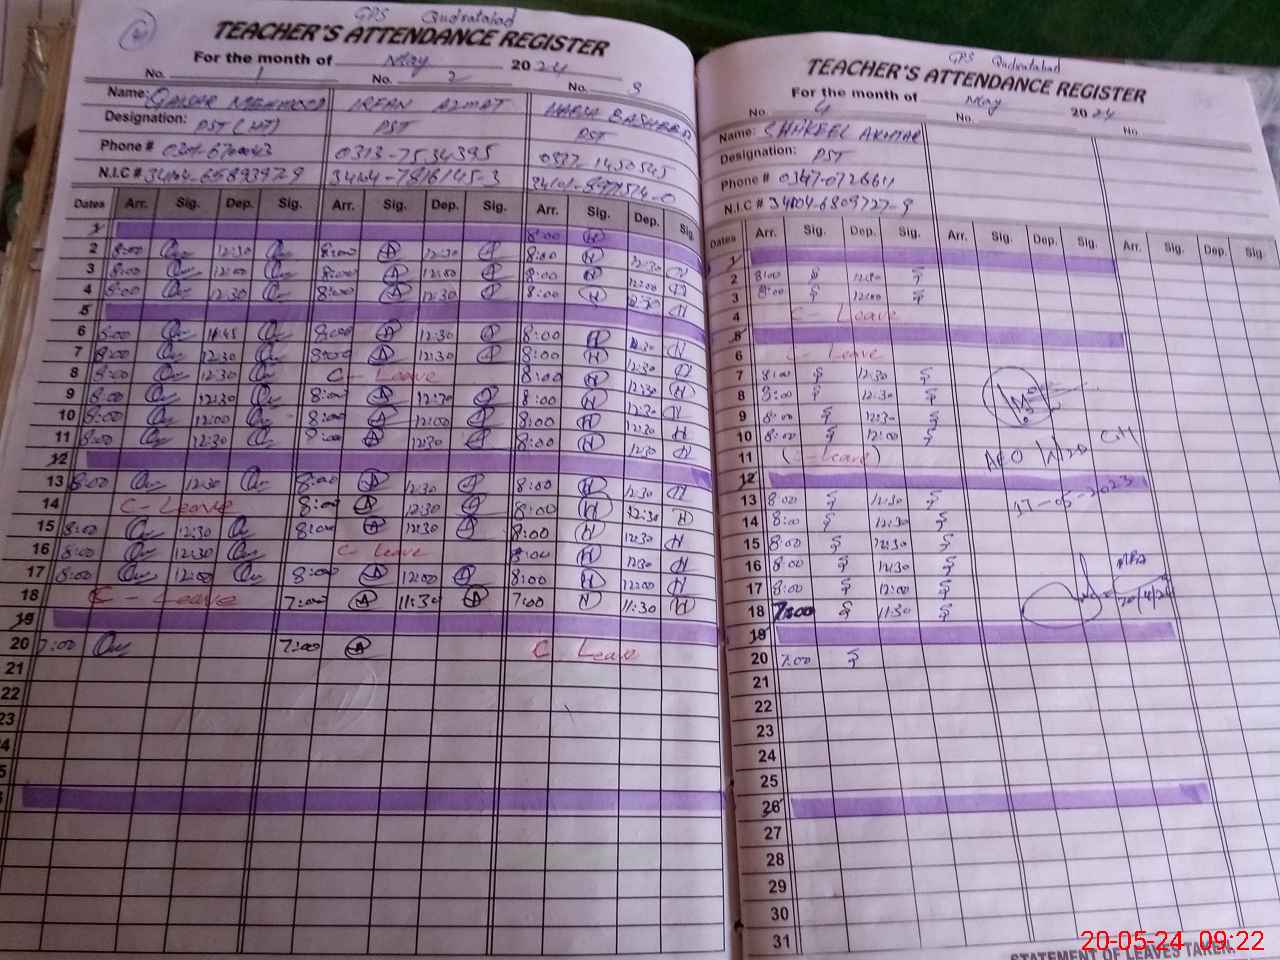 GPS Qudratabad
TEACHER'S ATTENDANCE REGISTER
For the month of May 2024
No. 1 No. 2 No. 3
Name: QAISAR MEHMOOD IRFAN AZMAT
Designation: PST (HT) PST PST
Phone # 0313-7534395
N.I.C # 34104-7816145-3
Dates Arr. Sig. Dep. Sig. Arr. Sig. Dep. Sig. Arr. Sig. Dep. Sig.
1 8:00 H
2 8:00 12:30 8:00 A 12:30 A 8:00 H 12:30 H
3 8:00 12:00 8:00 A 12:00 A 8:00 H 12:00 H
4 8:00 12:30 8:00 A 12:30 A 8:00 H 12:30 H
5
6 8:00 11:45 8:00 A 12:30 A 8:00 H 12:30 H
7 8:00 12:30 8:00 A 12:30 A 8:00 H 12:30 H
8 8:00 12:30 C - Leave 8:00 H 12:30 H
9 8:00 12:30 8:00 A 12:30 A 8:00 H 12:30 H
10 8:00 12:00 8:00 A 12:00 A 8:00 H 12:30 H
11 8:00 12:30 8:00 A 12:30 A 8:00 H 12:30 H
12
13 8:00 12:30 8:00 A 12:30 A 8:00 H 12:30 H
14 C - Leave 8:00 A 12:30 A 8:00 H 12:30 H
15 8:00 12:30 8:00 A 12:30 A 8:00 H 12:30 H
16 8:00 12:30 C - Leave 8:00 H 12:30 H
17 8:00 12:00 8:00 A 12:00 A 8:00 H 12:00 H
18 C - Leave 7:00 A 11:30 A 7:00 H 11:30 H
19
20 7:00 7:00 A C - Leave
21
22
23
GPS Qudratabad
TEACHER'S ATTENDANCE REGISTER
For the month of May 2024
No. 4 No. No.
Name: SHAKEEL AKHTAR
Designation: PST
Phone #
N.I.C # 34104-6809727-9
Dates Arr. Sig. Dep. Sig. Arr. Sig. Dep. Sig. Arr. Sig. Dep. Sig.
1
2 8:00 12:30
3 8:00 12:00
4 C - Leave
5
6 C - Leave
7 8:00 12:30
8 8:00 12:30
9 8:00 12:30
10 8:00 12:00
11 C - Leave
12
13 8:00 12:30
14 8:00 12:30
15 8:00 12:30
16 8:00 12:30
17 8:00 12:00
18 7:00 11:30
19
20 7:00
21
22
23
24
25
26
27
28
29
30
31
AEO
17-05-2023
STATEMENT OF LEAVES TAKEN
20-05-24 09:22